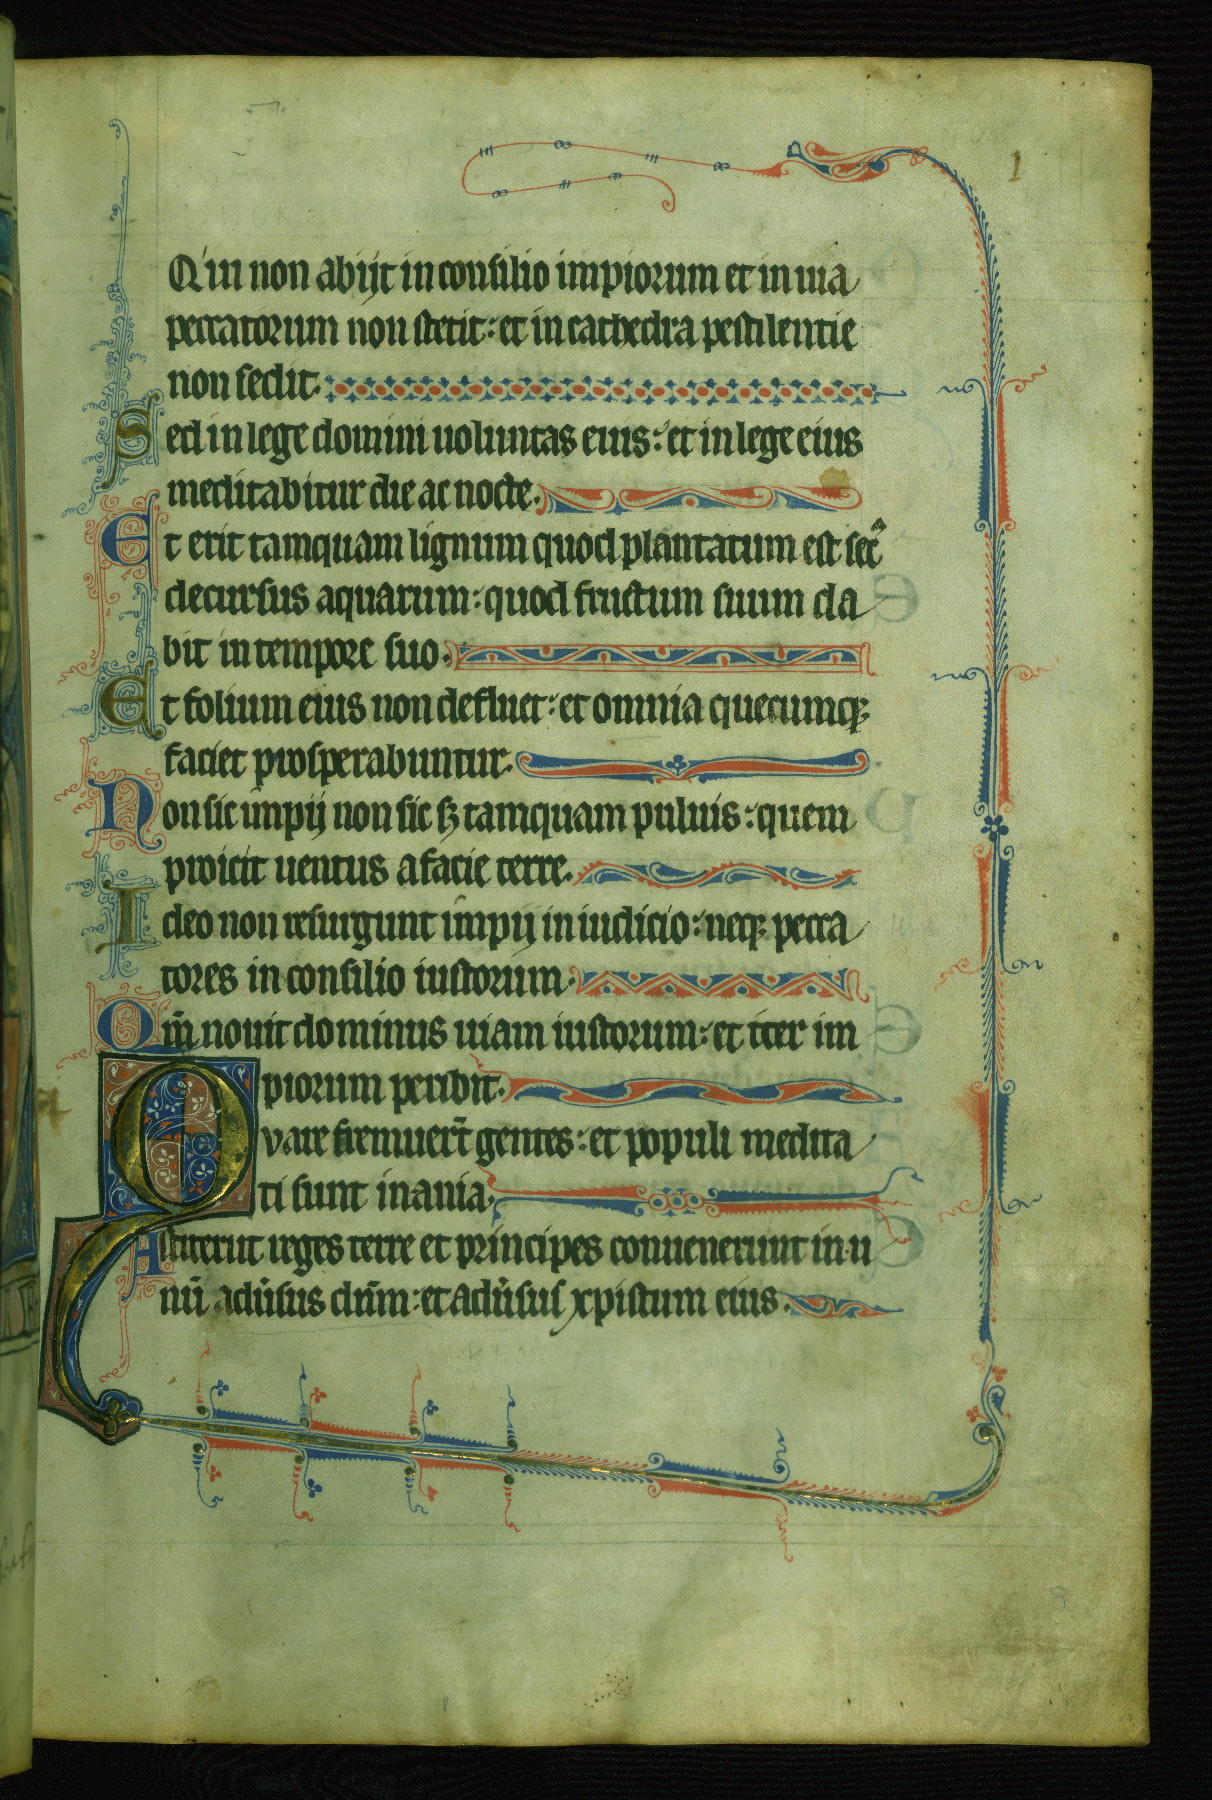 1
Qui non abijt in consilio impiorum et in uia
peccatorum non stetit: et in cathedra pestilentie
non sedit.
Sed in lege domini uoluntas eius: et in lege eius
meditabitur die ac nocte.
Et erit tamquam lignum quod plantatum est sec̄
decursus aquarum: quod fructum suum da
bit in tempore suo.
Et folium eius non defluet: et omnia quecumqꝫ
faciet prosperabuntur.
Non sic impij non sic sꝫ tamquam puluis: quem
proicit uentus a facie terre.
Ideo non resurgunt impij in iudicio: neqꝫ pecca
tores in consilio iustorum.
Qm̄ nouit dominus uiam iustorum: et iter im
piorum peribit.
Quare fremuer̄t gentes: et populi medita
ti sunt inania.
Astiterunt reges terre et principes conuenerunt in u
nū adūsus dn̄m: et adūsus xpistum eius.